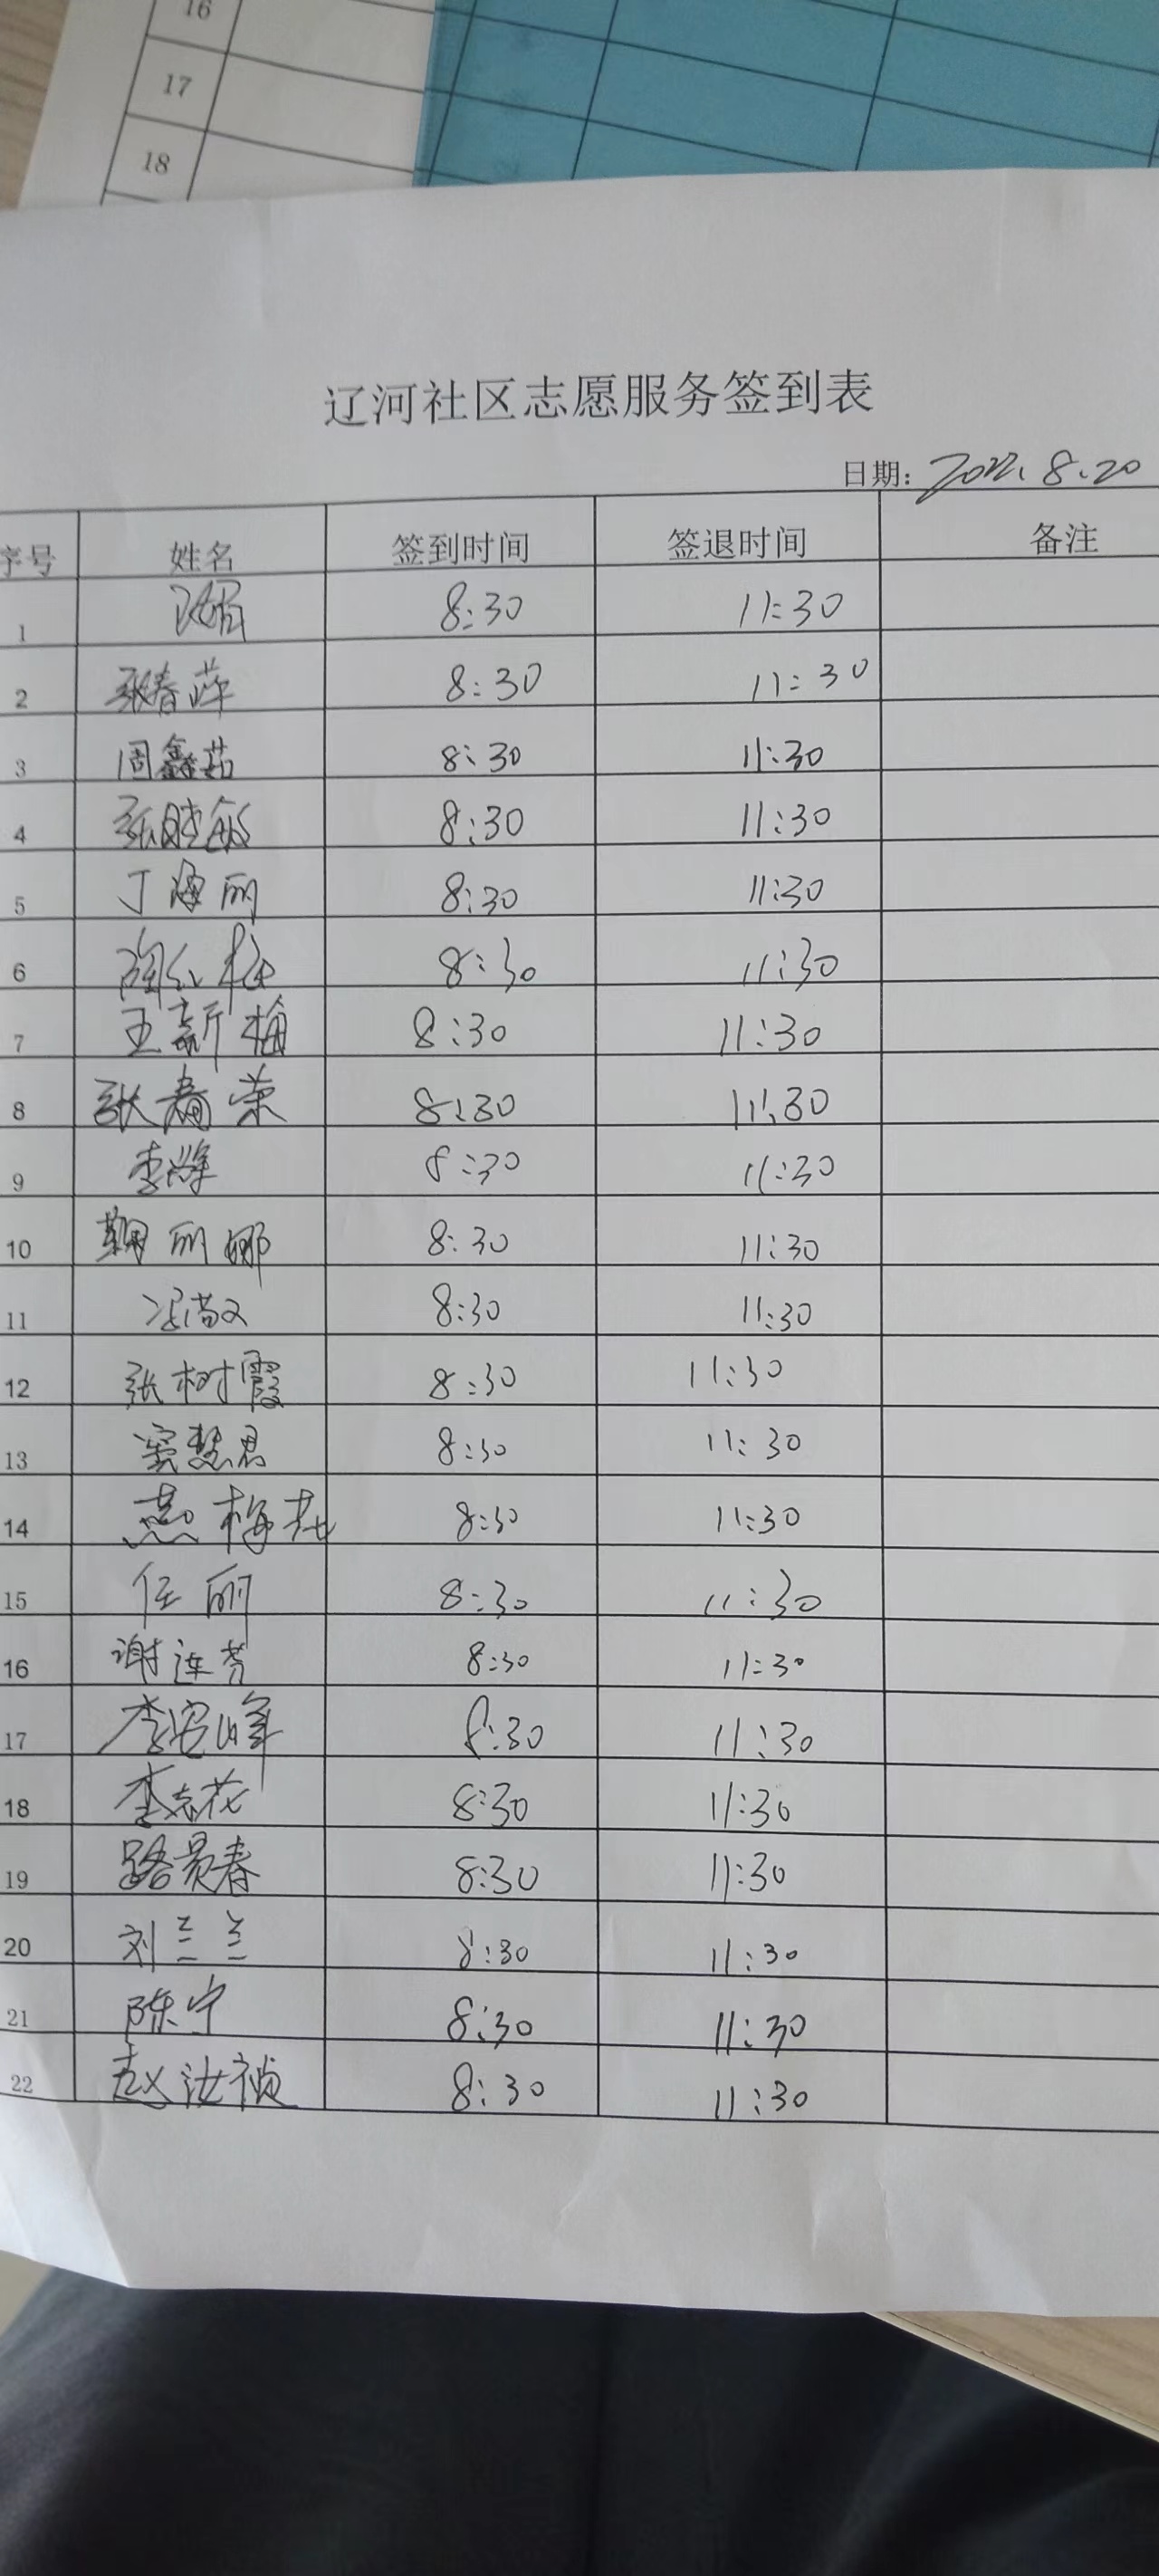 16
17
18
辽河社区志愿服务签到表
日期: 2022.8.20
序号 姓名 签到时间 签退时间 备注
1 8:30 11:30
2 张春萍 8:30 11:30
3 周鑫茹 8:30 11:30
4 张晓敏 8:30 11:30
5 丁海丽 8:30 11:30
6 陶红梅 8:30 11:30
7 王新梅 8:30 11:30
8 张春荣 8:30 11:30
9 李 8:30 11:30
10 鞠丽娜 8:30 11:30
11 8:30 11:30
12 张树霞 8:30 11:30
13 窦慧君 8:30 11:30
14 燕梅花 8:30 11:30
15 任丽 8:30 11:30
16 谢连芳 8:30 11:30
17 李安峰 8:30 11:30
18 李志花 8:30 11:30
19 路景春 8:30 11:30
20 刘兰兰 8:30 11:30
21 陈宁 8:30 11:30
22 赵汝祯 8:30 11:30